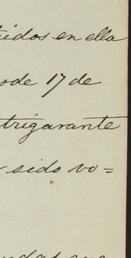 idos en ella
ode 17 de
trigarante
sido vo=